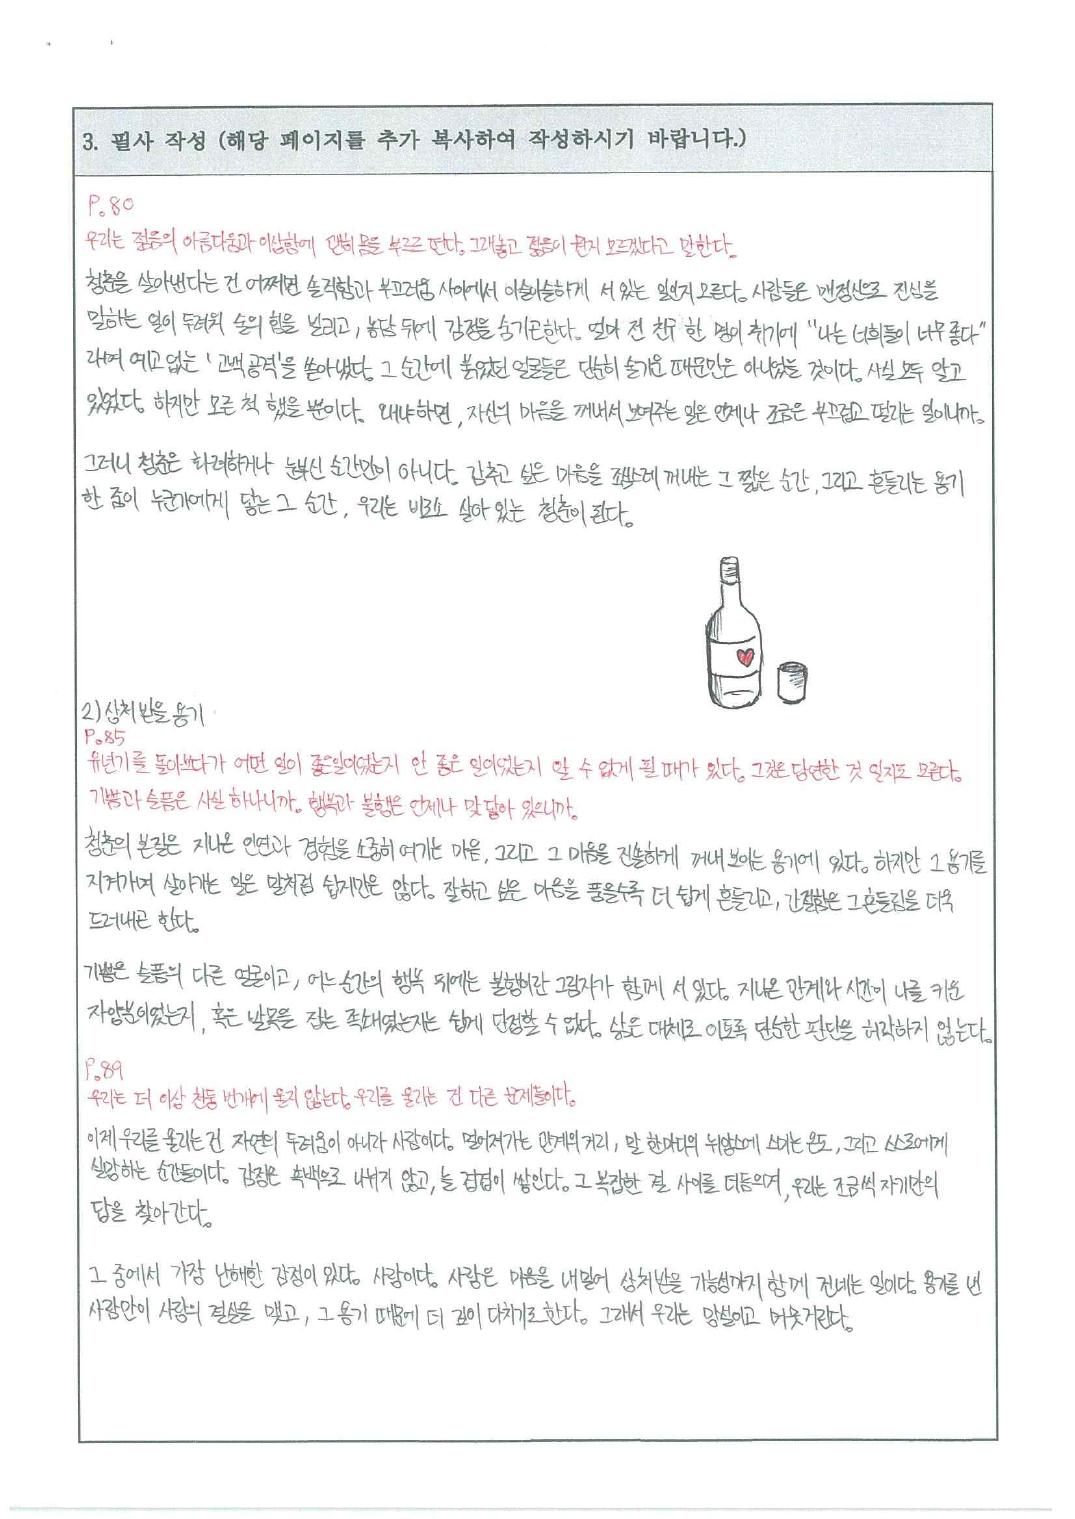 3. 필사 작성 (해당 페이지를 추가 복사하여 작성하시기 바랍니다.)
P.80
우리는 젊음의 아름다움과 이상함에 괜히 몸을 부르르 떤다. 그래놓고 젊음이 뭔지 모르겠다고 말한다.
청춘을 살아낸다는 건 어쩌면 솔직함과 부끄러움 사이에서 아슬아슬하게 서 있는 일인지 모른다. 사람들은 맨정신으로 진심을
말하는 일이 두려워 술의 힘을 빌리고, 농담 뒤에 감정을 숨기곤한다. 얼마 전 친구 한 명이 취기에 "나는 너희들이 너무 좋다"
라며 예고없는 '고백공격'을 쏟아냈다. 그 순간에 붉었던 얼굴들은 단순히 술기운 때문만은 아니었을 것이다. 사실 모두 알고
있었다. 하지만 모른 척 했을 뿐이다. 왜냐하면, 자신의 마음을 꺼내서 보여주는 일은 언제나 조금은 부끄럽고 떨리는 일이니까.
그러니 청춘은 화려하거나 눈부신 순간만이 아니다. 감추고 싶은 마음을 조심스레 꺼내는 그 짧은 순간, 그리고 흔들리는 용기
한 줌이 누군가에게 닿는 그 순간, 우리는 비로소 살아 있는 청춘이 된다.
2) 상처받을 용기
P.85
유년기를 돌아보다가 어떤 일이 좋은일이었는지 안 좋은 일이었는지 알 수 없게 될 때가 있다. 그것은 당연한 것 일지도 모른다.
기쁨과 슬픔은 사실 하나니까. 행복과 불행은 언제나 맞닿아 있으니까.
청춘의 본질은 지나온 인연과 경험을 소중히 여기는 마음, 그리고 그 마음을 진솔하게 꺼내 보이는 용기에 있다. 하지만 그 용기를
지켜가며 살아가는 일은 말처럼 쉽지만은 않다. 잘하고 싶은 마음을 품을수록 더 쉽게 흔들리고, 간절함은 그 흔들림을 더욱
드러내곤 한다.
기쁨은 슬픔의 다른 얼굴이고, 어느 순간의 행복 뒤에는 불행이란 그림자가 함께 서 있다. 지나온 관계와 시간이 나를 키운
자양분이었는지, 혹은 발목을 잡는 족쇄였는지는 쉽게 단정할 수 없다. 삶은 대체로 이토록 단순한 판단을 허락하지 않는다.
P.89
우리는 더 이상 천둥 번개에 울지 않는다. 우리를 울리는 건 다른 문제들이다.
이제 우리를 울리는 건 자연의 두려움이 아니라 사람이다. 멀어져가는 관계의 거리, 말 한마디의 뉘앙스에 스미는 온도, 그리고 스스로에게
실망하는 순간들이다. 감정은 흑백으로 나뉘지 않고, 늘 겹겹이 쌓인다. 그 복잡한 결 사이를 더듬으며, 우리는 조금씩 자기만의
답을 찾아간다.
그 중에서 가장 난해한 감정이 있다. 사랑이다. 사랑은 마음을 내밀어 상처받을 가능성까지 함께 건네는 일이다. 용기를 낸
사람만이 사랑의 결실을 맺고, 그 용기 때문에 더 깊이 다치기도한다. 그래서 우리는 망설이고 머뭇거린다.